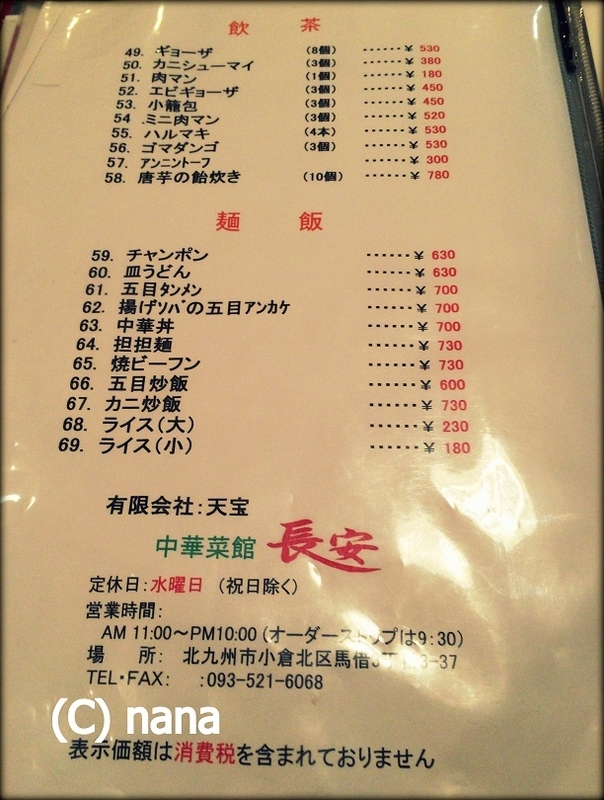 飲 茶
49. ギョーザ (8個) ……¥ 530
50. カニシューマイ (3個) ……¥ 380
51. 肉マン (1個) ……¥ 180
52. エビギョーザ (3個) ……¥ 450
53. 小籠包 (3個) ……¥ 450
54 .ミニ肉マン (3個) ……¥ 520
55. ハルマキ (4本) ……¥ 530
56. ゴマダンゴ (3個) ……¥ 530
57. アンニントーフ ……¥ 300
58. 唐芋の飴炊き (10個) ……¥ 780
麺 飯
59. チャンポン ……¥ 630
60. 皿うどん ……¥ 630
61. 五目タンメン ……¥ 700
62. 揚げソバの五目アンカケ ……¥ 700
63. 中華丼 ……¥ 700
64. 担担麺 ……¥ 730
65. 焼ビーフン ……¥ 730
66. 五目炒飯 ……¥ 600
67. カニ炒飯 ……¥ 730
68. ライス(大) ……¥ 230
69. ライス(小) ……¥ 180
有限会社:天宝
中華菜館 長安
定休日:水曜日 (祝日除く)
営業時間:
AM 11:00~PM10:00 (オーダーストップは9:30)
場 所: 北九州市小倉北区馬借
TEL・FAX: :093-521-6068
(C) nana
表示価額は消費税を含まれておりません